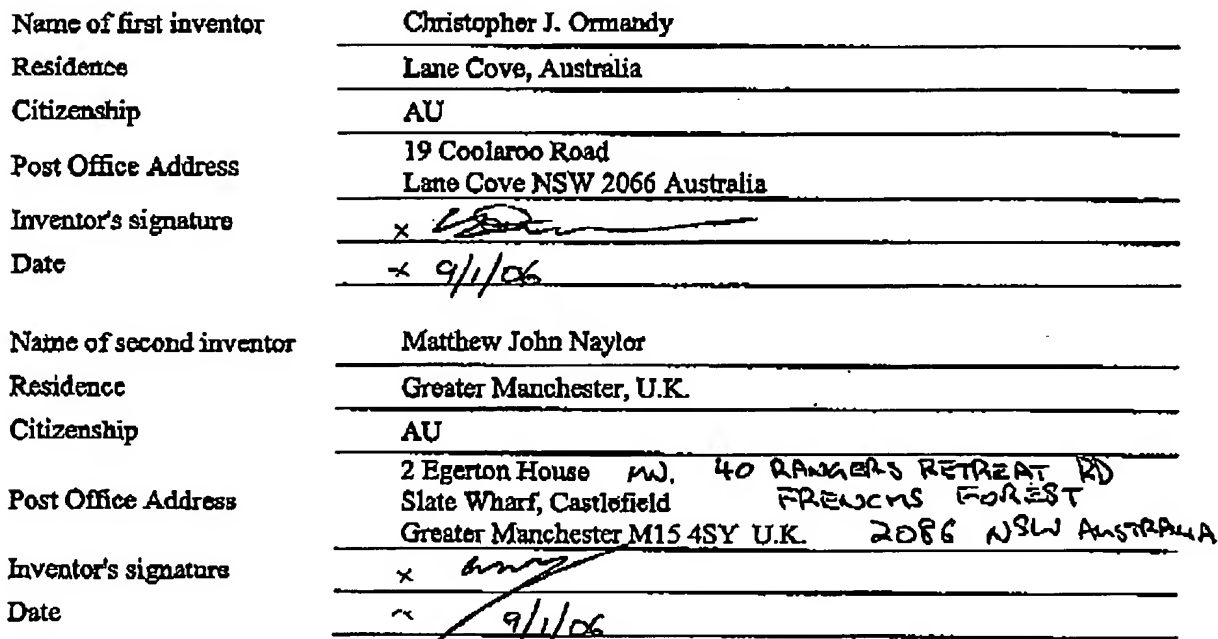 Name of first inventor Christopher J. Ormandy
Residence Lane Cove, Australia
Citizenship AU
Post Office Address 19 Coolaroo Road
Lane Cove NSW 2066 Australia
Inventor's signature x
Date x 9/1/06
Name of second inventor Matthew John Naylor
Residence Greater Manchester, U.K.
Citizenship AU
2 Egerton House MN. 40 RANGERS RETREAT RD
Post Office Address Slate Wharf, Castlefield FRENCHS FOREST
Greater Manchester M15 4SY U.K. 2086 NSW AUSTRALIA
Inventor's signature x
Date 9/1/06